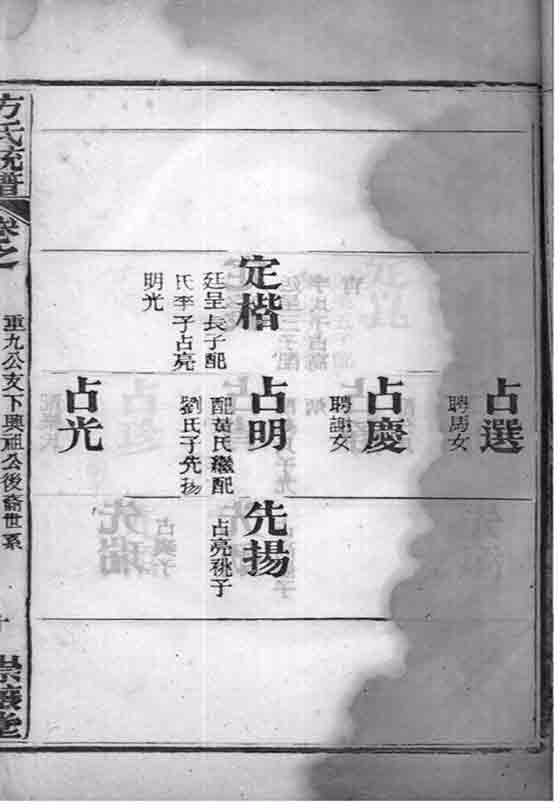 定楷
廷呈長子配
氏李子占亮
明光
占選
聘馬女
占慶
聘謝女
占明
配黃氏繼配
劉氏子先揚
占光
先揚
占亮祧子
方氏統譜
卷之
重九公支下興祖公後裔世系